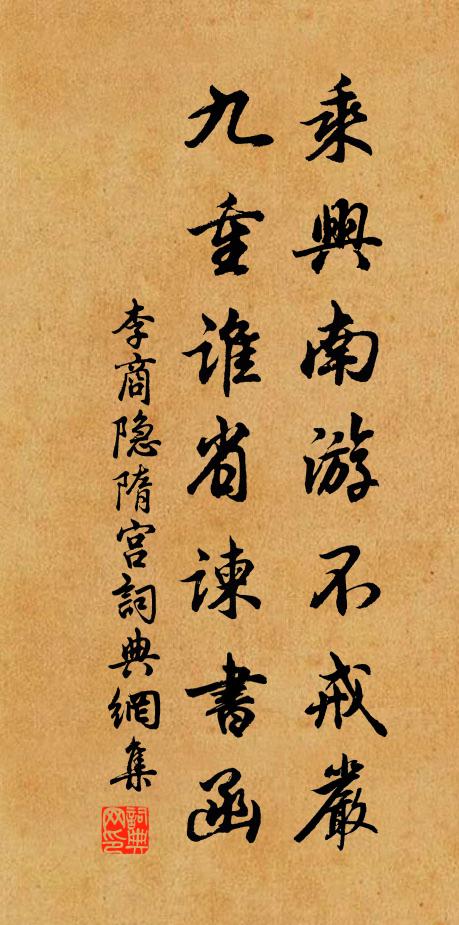 乘興南游不戒嚴
九重谁省諫書函
李商隐隋宫詞典網集
詞典网印